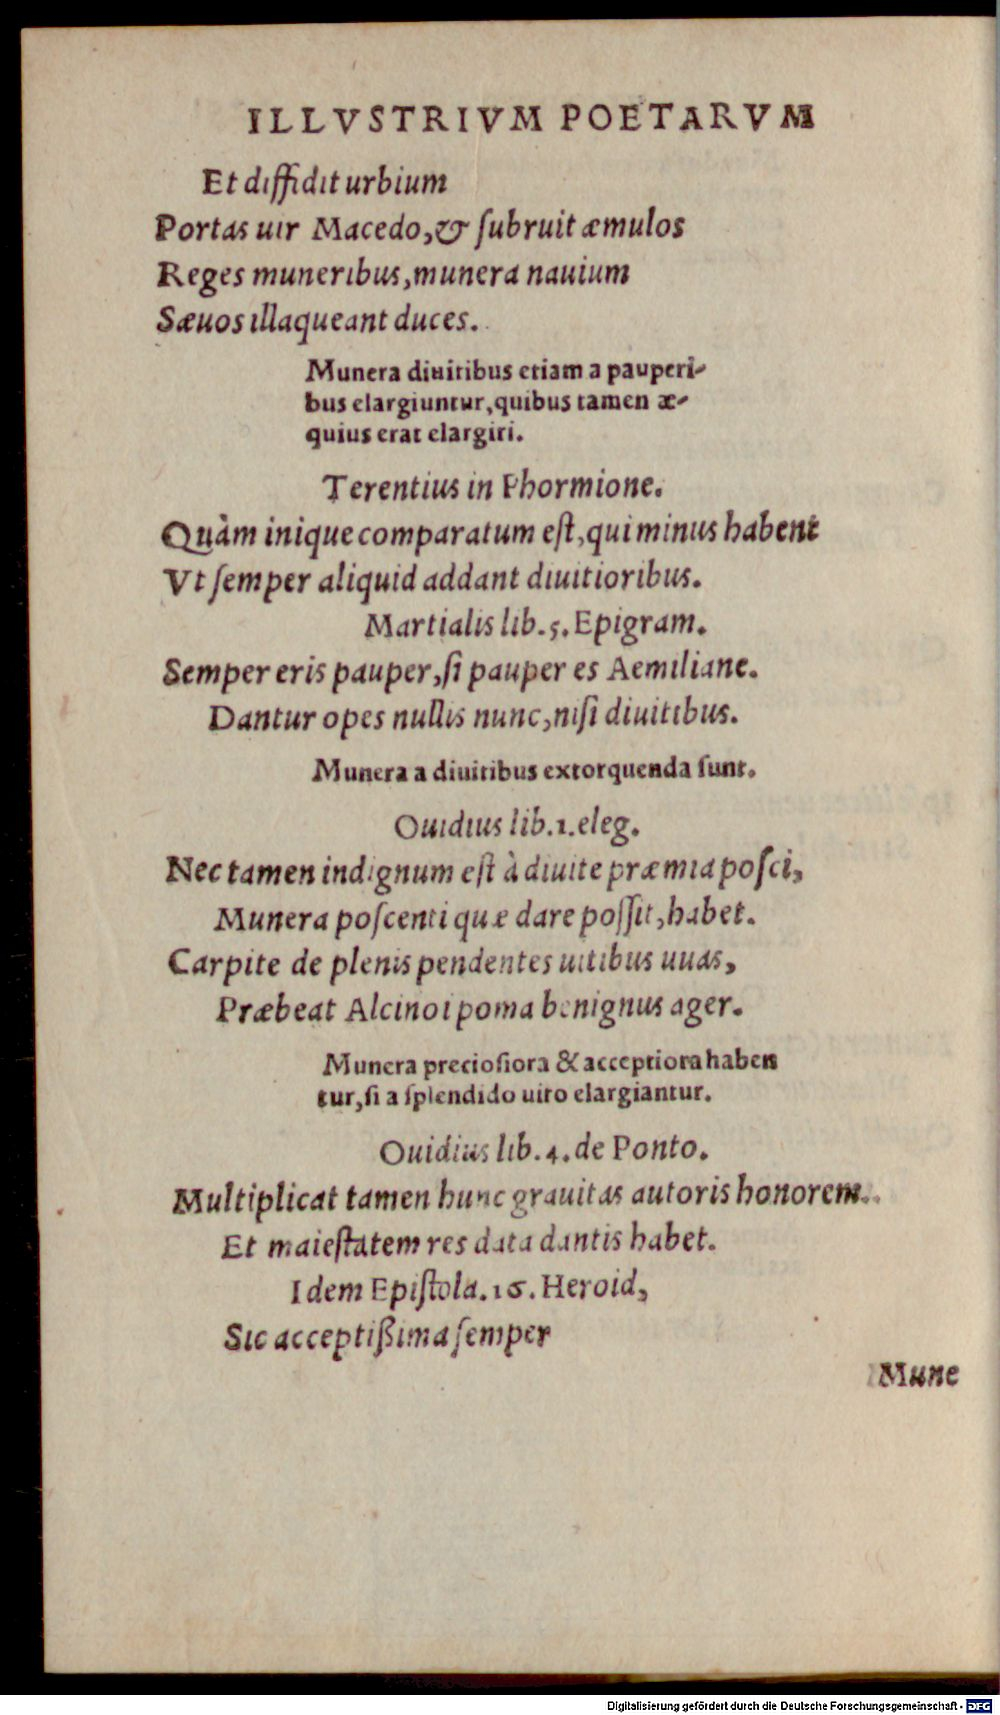 ILLVSTRIVM POETARVM
Et diffidit urbium
Portas uir Macedo, & ſubruit æmulos
Reges muneribus, munera nauium
Sæuos illaqueant duces.
Munera diuitibus etiam a pauperi-
bus elargiuntur, quibus tamen æ-
quius erat elargiri.
Terentius in Phormione.
Quàm inique comparatum eſt, qui minus habent
Vt ſemper aliquid addant diuitioribus.
Martialis lib. 5. Epigram.
Semper eris pauper, ſi pauper es Aemiliane.
Dantur opes nullis nunc, niſi diuitibus.
Munera a diuitibus extorquenda ſunt.
Ouidius lib. 1. eleg.
Nec tamen indignum eſt à diuite præmia poſci,
Munera poſcenti quæ dare poſſit, habet.
Carpite de plenis pendentes uitibus uuas,
Præbeat Alcinoi poma benignus ager.
Munera precioſiora & acceptiora haben
tur, ſi a ſplendido uiro elargiantur.
Ouidius lib. 4. de Ponto.
Multiplicat tamen hunc grauitas autoris honorem.
Et maieſtatem res data dantis habet.
Idem Epiſtola. 16. Heroid,
Sic acceptißima ſemper
Mune
Digitalisierung gefördert durch die Deutsche Forschungsgemeinschaft - DFG